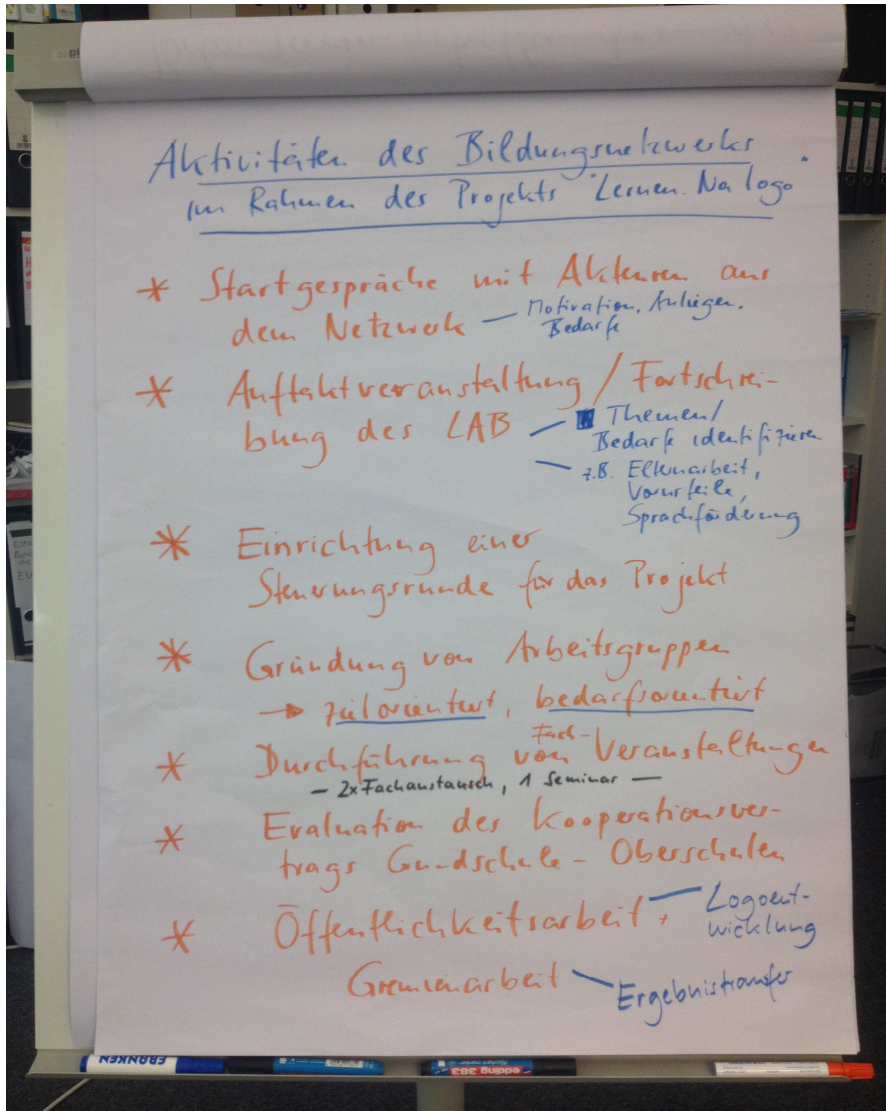 Aktivitäten des Bildungsnetzwerks
im Rahmen des Projekts "Lernen. Na logo"
* Startgespräche mit Akteuren aus
dem Netzwerk – Motivation, Anliegen,
Bedarfe
* Auftaktveranstaltung / Fortschrei-
bung des LAB – Themen/
Bedarfe identifizieren
– z.B. Elternarbeit,
Vorurteile,
Sprachförderung
* Einrichtung einer
Steuerungsrunde für das Projekt
* Gründung von Arbeitsgruppen
→ zielorientiert, bedarfsorientiert
* Durchführung von Fach-Veranstaltungen
– 2x Fachaustausch, 1 Seminar –
* Evaluation des Kooperationsver-
trags Grundschule – Oberschulen
* Öffentlichkeitsarbeit + – Logoent-
wicklung
Gremienarbeit – Ergebnistransfer
FRANKEN
edding 383